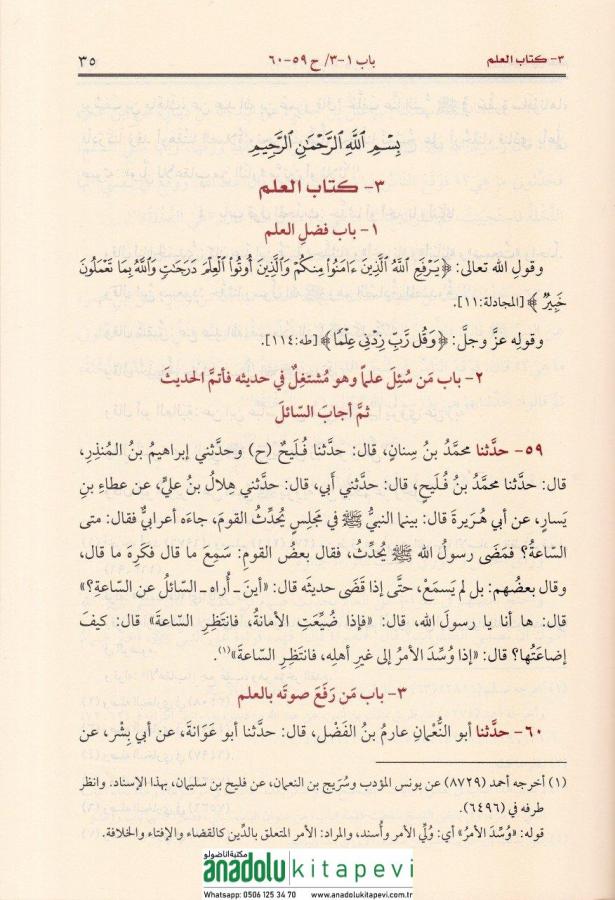 ٣- كتاب العلم باب ١-٣/ ح ٥٩-٦٠ ٣٥
بِسْمِ ٱللَّهِ ٱلرَّحْمَٰنِ ٱلرَّحِيمِ
٣- كتاب العلم
١- باب فضلِ العلم
وقولِ الله تعالى: ﴿يَرْفَعِ اللَّهُ الَّذِينَ ءَامَنُوا مِنكُمْ وَالَّذِينَ أُوتُوا الْعِلْمَ دَرَجَٰتٍ وَاللَّهُ بِمَا تَعْمَلُونَ
خَبِيرٌ﴾ [المجادلة:١١].
وقوله عزَّ وجلَّ: ﴿وَقُل رَّبِّ زِدْنِي عِلْمًا﴾ [طه:١١٤].
٢- باب مَن سُئِلَ علماً وهو مُشتغِلٌ في حديثِه فأتمَّ الحديثَ
ثمَّ أجابَ السّائلَ
٥٩- حدَّثنا محمَّدُ بنُ سِنانٍ، قال: حدَّثنا فُلَيحٌ (ح) وحدَّثني إبراهيمُ بنُ المُنذِرِ،
قال: حدَّثنا محمَّدُ بنُ فُلَيحٍ، قال: حدَّثني أبي، قال: حدَّثني هِلالُ بنُ عليٍّ، عن عطاءِ بنِ
يَسارٍ، عن أبي هُرَيرةَ قال: بينما النبيُّ ﷺ في مَجلِسٍ يُحدِّثُ القومَ، جاءَه أعرابيٌّ فقال: متى
السّاعةُ؟ فمَضَى رسولُ الله ﷺ يُحدِّثُ، فقال بعضُ القومِ: سَمِعَ ما قال فكَرِهَ ما قال،
وقال بعضُهم: بل لم يَسمَعْ، حتَّى إذا قَضَى حديثَه قال: «أينَ ـ أُراه ـ السّائلُ عن السّاعةِ؟»
قال: ها أنا يا رسولَ الله، قال: «فإذا ضُيِّعَتِ الأمانةُ، فانتَظِرِ السّاعةَ» قال: كيفَ
إضاعَتُها؟ قال: «إذا وُسِّدَ الأمرُ إلى غيرِ أهلِه، فانتَظِرِ السّاعةَ»(١).
٣- باب مَن رَفَعَ صوتَه بالعلم
٦٠- حدَّثنا أبو النُّعْمانِ عارِمُ بنُ الفَضْل، قال: حدَّثنا أبو عَوَانةَ، عن أبي بِشْرٍ، عن
(١) أخرجه أحمد (٨٧٢٩) عن يونس المؤدب وسُرَيج بن النعمان، عن فليح بن سليمان، بهذا الإسناد. وانظر
طرفه في (٦٤٩٦).
قوله: «وُسِّدَ الأمرُ» أي: وُلِّي الأمر وأُسند، والمراد: الأمر المتعلق بالدِّين كالقضاء والإفتاء والخلافة.
مكتبة اناضولو
anadolu kitapevi
Whatsapp: 0506 125 34 70 www.anadolukitapevi.com.tr